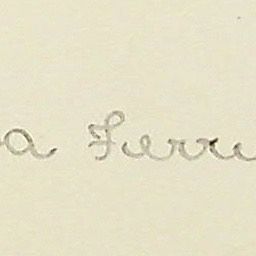 a Ferru